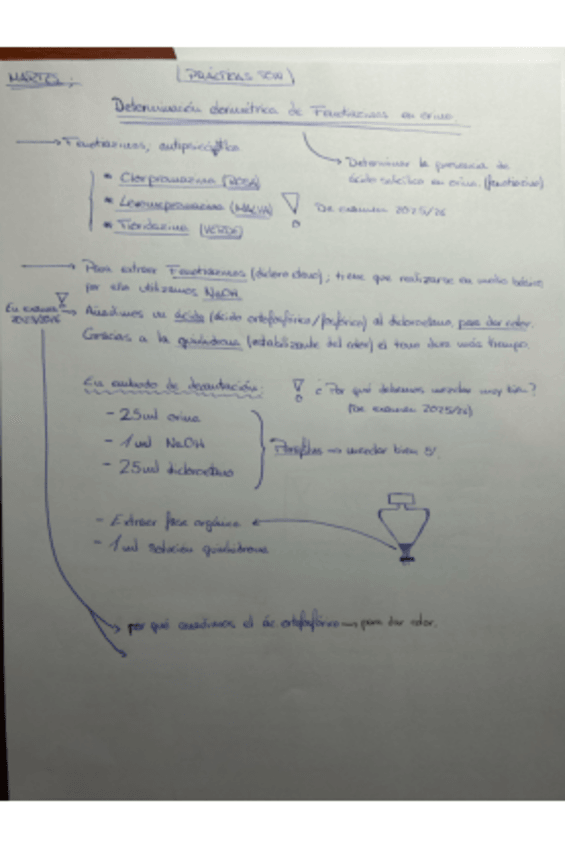 MARTES:
(PRÁCTICAS SEW)
Determinación colorimétrica de Fenotiazinas en orina.
→ Fenotiazinas, antipsicótico
→ Determinar la presencia de
ácido salicílico en orina. (fenotiazina)
* Clorpromazina (ROSA)
* Levomepromazina (MALVA)
De examen 2025/26
* Tioridazina (VERDE)
→ Para extraer Fenotiazinas (dicloroetano); tiene que realizarse en medio básico
por ello utilizamos NaOH
En examen
2025/2026
→ Añadimos un ácido (ácido ortofosfórico/fosfórico) al dicloroetano, para dar color.
Gracias a la quinhidrona (estabilizante del color) el tono dura más tiempo.
En embudo de decantación:
¿Por qué debemos mezclar muy bien?
(De examen 2025/26)
- 25ml orina
- 1ml NaOH
- 25ml dicloroetano
→ mezclar bien 5'.
- Extraer fase orgánica
- 1ml solución quinhidrona
→ por qué añadimos el ác ortofosfórico → para dar color.